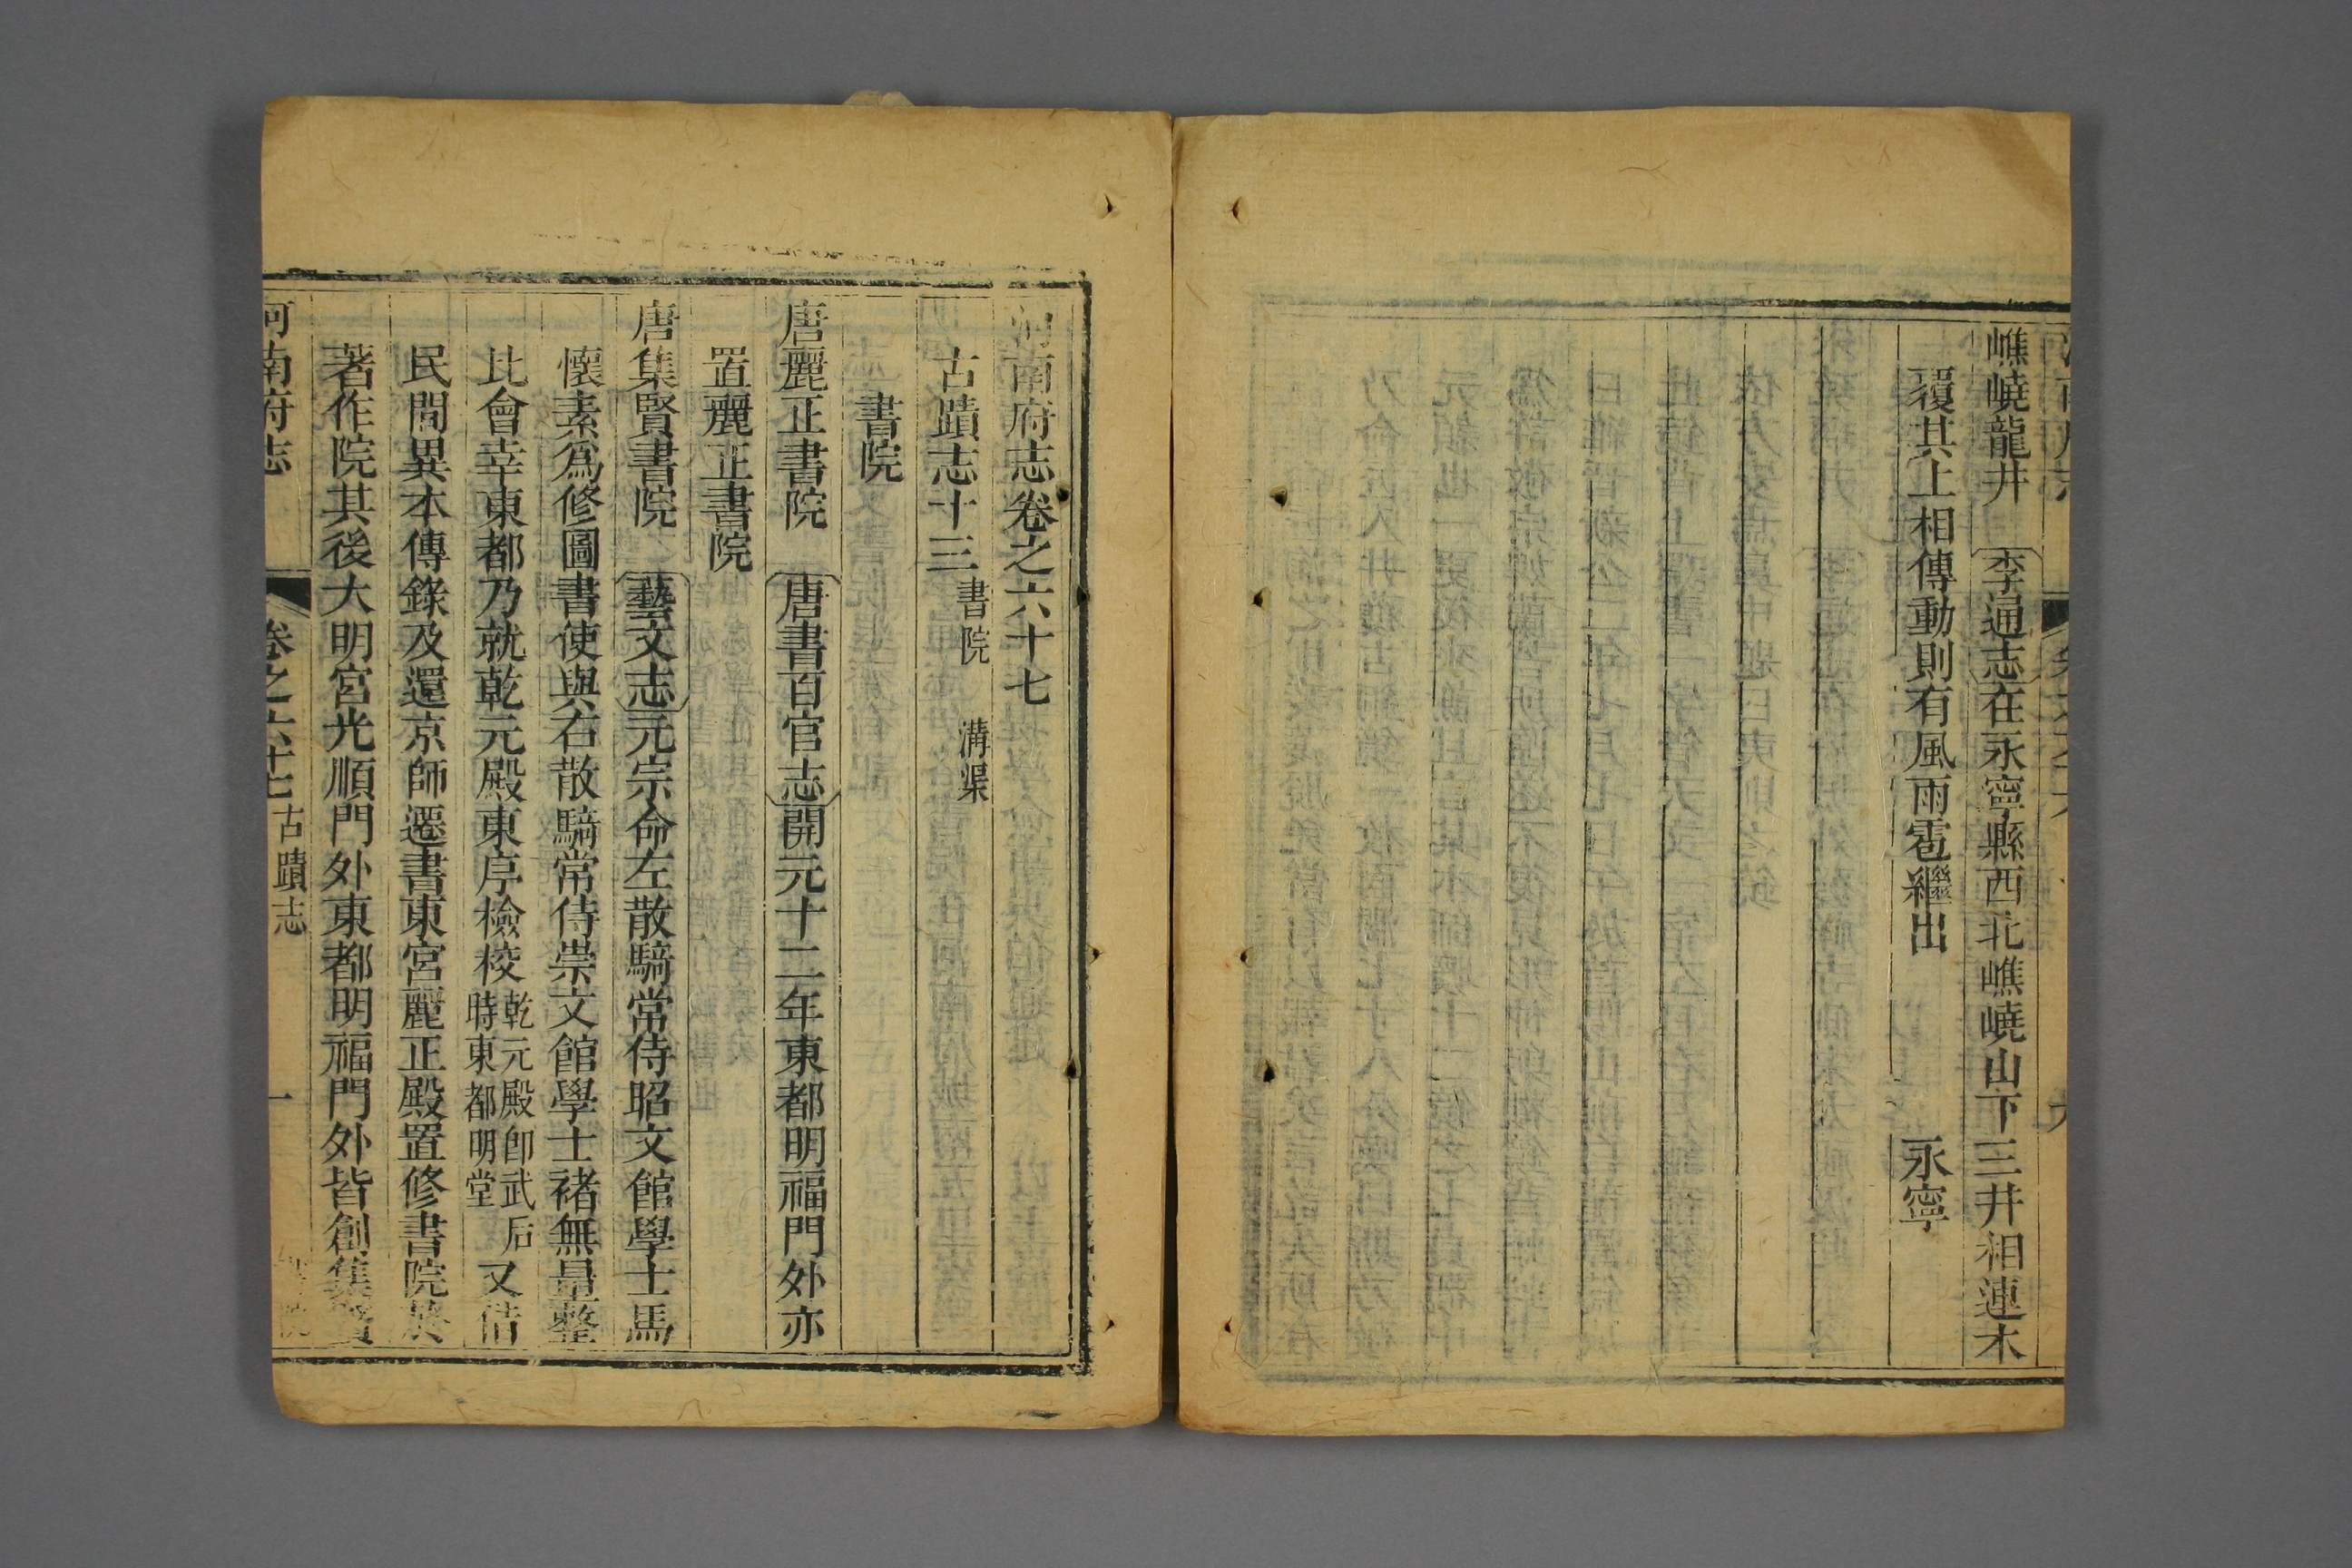 嶕嶢龍井　李通志在永寧縣西北嶕嶢山下三井相連木
覆其上相傳動則有風雨雹繼出　永寧
河南府志卷之六十七
古蹟志十三　書院　溝渠
書院
唐麗正書院　唐書百官志開元十二年東都明福門外亦
置麗正書院
唐集賢書院　藝文志元宗命左散騎常侍昭文館學士馬
懷素爲修圖書使與右散騎常侍崇文館學士褚無量整
比會幸東都乃就乾元殿東序檢校乾元殿卽武后時東都明堂又借
民間異本傳錄及還京師遷書東宮麗正殿置修書院於
著作院其後大明宮光順門外東都明福門外皆創集賢
河南府志　卷之六十七　古蹟志　一　書院